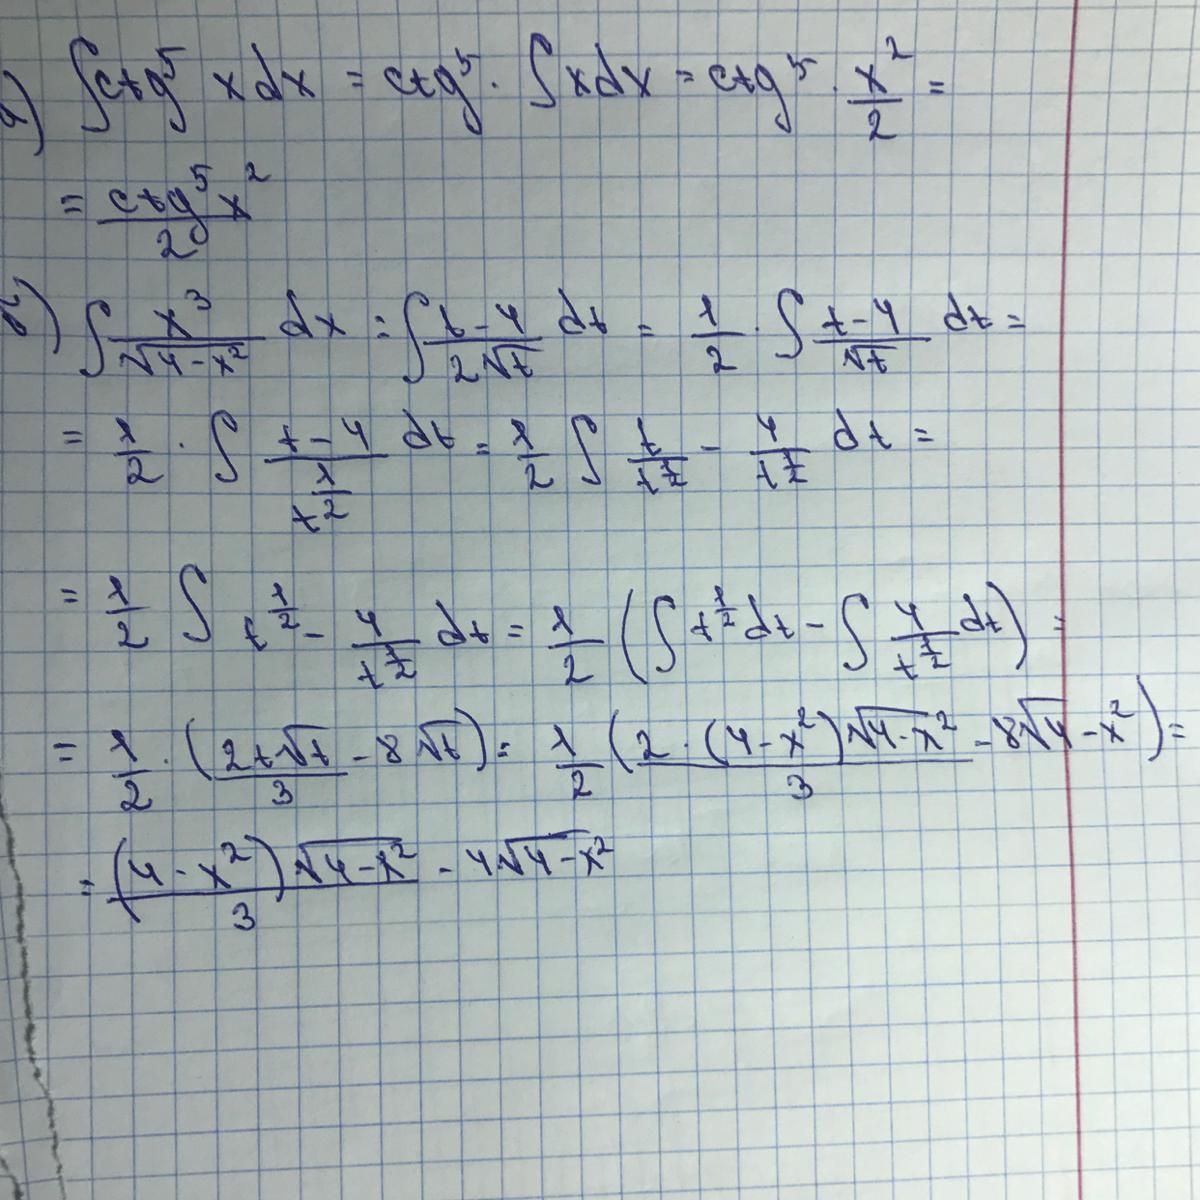 а) ∫ctg⁵ x dx = ctg⁵ · ∫x dx = ctg⁵ · x²/2 =
= ctg⁵x²/2
б) ∫ x³/√(4-x²) dx = ∫ (t-4)/(2√t) dt = 1/2 · ∫ (t-4)/√t dt =
= 1/2 · ∫ (t-4)/t^(1/2) dt = 1/2 ∫ t/t^(1/2) - 4/t^(1/2) dt =
= 1/2 ∫ t^(1/2) - 4/t^(1/2) dt = 1/2 (∫ t^(1/2) dt - ∫ 4/t^(1/2) dt) =
= 1/2 · (2t√t/3 - 8√t) = 1/2 (2·(4-x²)√(4-x²)/3 - 8√4-x²) =
= (4-x²)√(4-x²)/3 - 4√(4-x²)